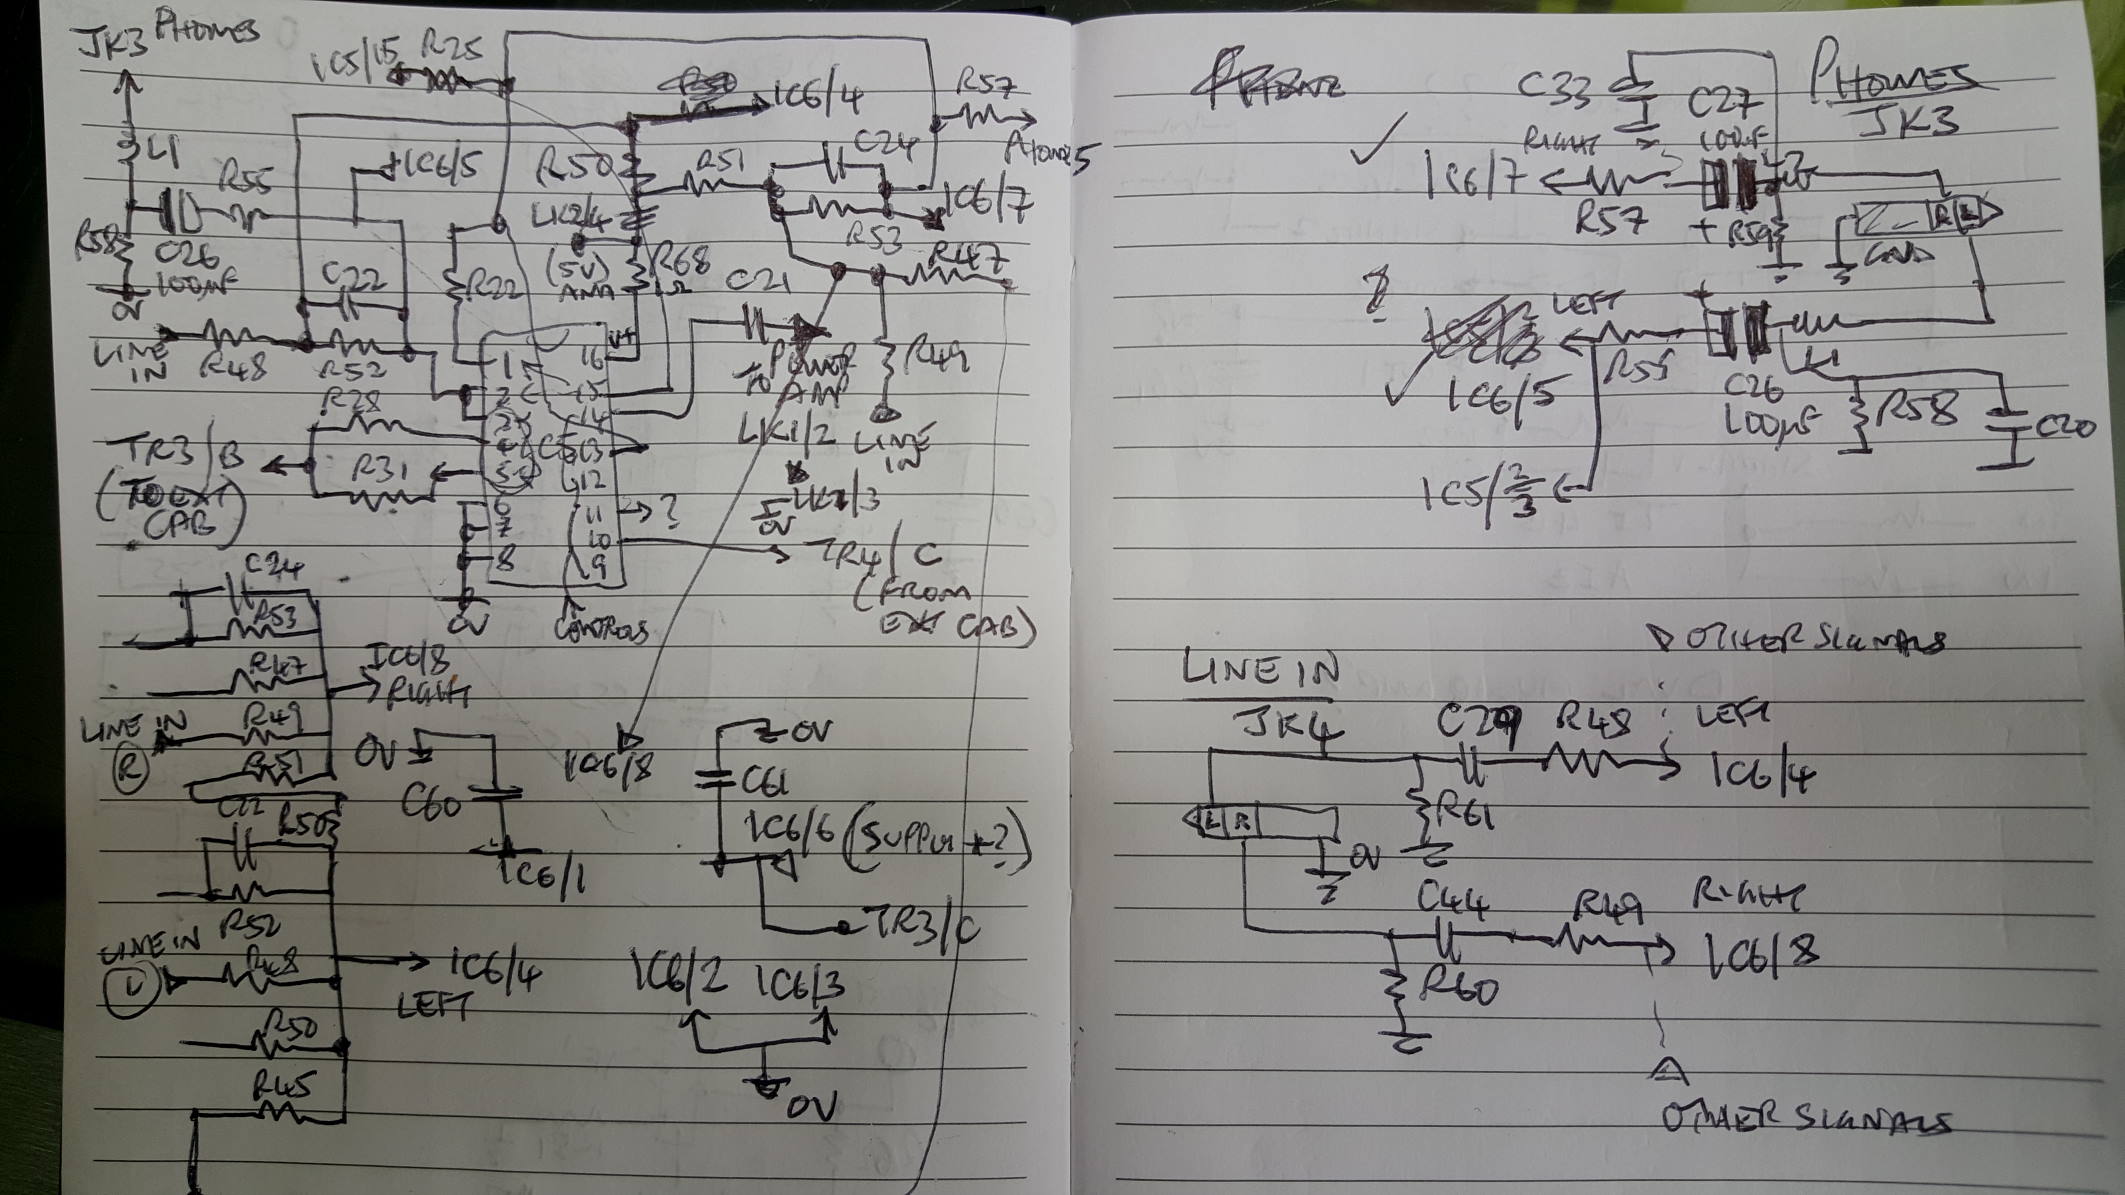 JK3 PHONES
IC5/15 R25
IC6/4
R57
PHONES
L1
R55
IC6/5
R50
R51
C24
IC6/7
R58
C26
100µF
0V
C22
R22
LK2/4
(5V)
R68
1Ω
C21
R53
R47
LINE IN
R48
R52
V+
1 16
2 15
14
TO POWER AMP
R49
R28
LK1/2
LINE IN
TR3/B
(TO EXT CAB)
R31
4 IC5 13
5 12
6 11 ?
7 10
8 9
0V
CONTROLS
0V
TR4/C
(FROM EXT CAB)
C24
R53
R47
IC6/8
RIGHT
LINE IN
R
R49
R51
0V
C60
IC6/1
IC6/8
0V
C61
IC6/6 (SUPPLY +?)
TR3/C
C22
R50
R52
LINE IN
L
R48
IC6/4
LEFT
R50
R45
IC6/2 IC6/3
0V
PHONES
JK3
C33
C27
100µF
RIGHT
IC6/7
R57
+
R59
R L
GND
?
LEFT
+
IC6/5
R55
C26
100µF
L1
R58
C20
IC5/2/3
OTHER SIGNALS
LINE IN
JK4
C29 R48 LEFT
IC6/4
L R
R61
0V
C44 R49 RIGHT
IC6/8
R60
OTHER SIGNALS